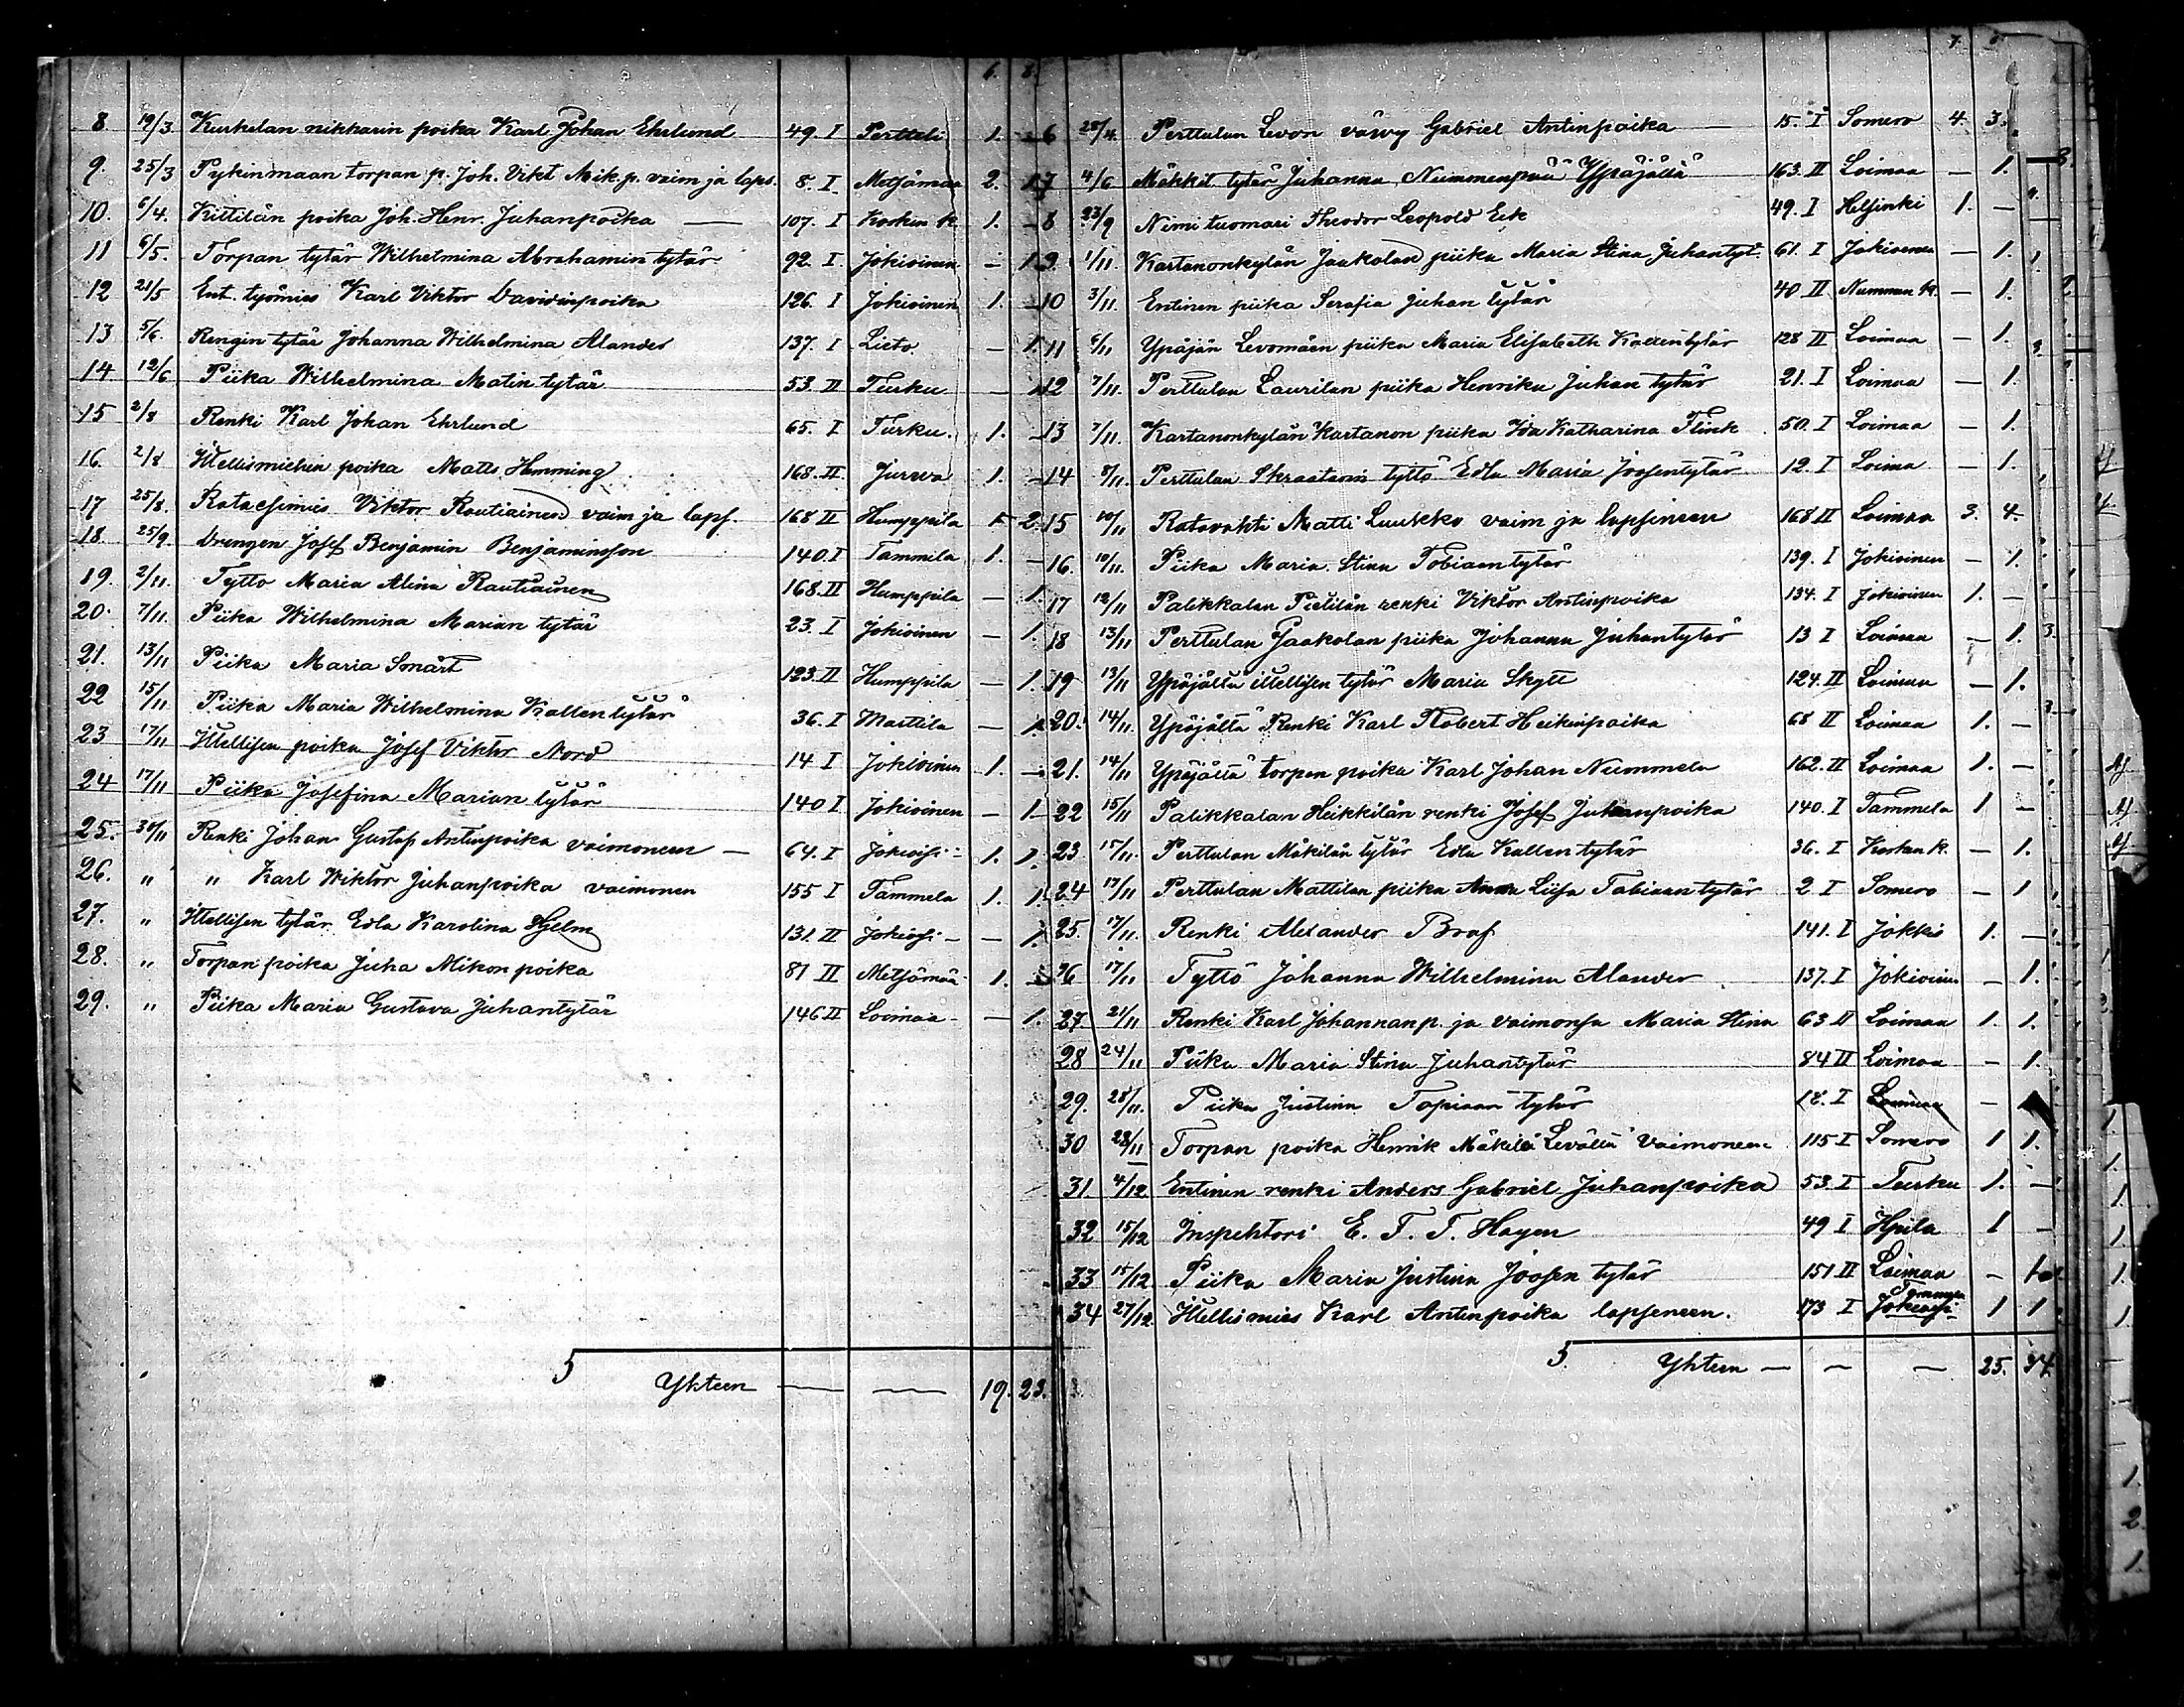 6. 8.
8 19/3 Kurkelan nikkarin poika Karl Johan Ehrlund 49. I Pertteli 1. –
9. 25/3 Pykinmaan torpan p. Joh. Vikt Mik.p. vaim ja laps. 8. I Metsämaa 2. 1
10. 6/4. Kittilän poika Joh. Henr. Juhanpoika — 107. I Kosken k. 1. –
11 6/5. Torpan tytär Wilhelmina Abrahamin tytär 92. I Jokioinen – 1
12 21/5 Ent. työmies Karl Viktor Davidinpoika 126. I Jokioinen 1. –
13 5/6. Rengin tytär Johanna Wilhelmina Alander 137. I Lieto. – 1.
14 12/6 Piika Wilhelmina Matin tytär 53. II Turku – 1
15 2/8 Renki Karl Johan Ehrlund 65. I Turku. 1. –
16. 2/8 Itellismiehen poika Matts Hemming 168. II Jurva 1. –
17 25/8. Rataesimies Viktor Rautiainen vaim ja laps. 168 II Humppila 1 2.
18. 25/9 Drengen Josef Benjamin Benjaminsson 140 I Tammela 1. –
19. 2/11. Tyttö Maria Alina Rautiainen 168. II Humppila – 1.
20. 7/11. Piika Wilhelmina Marian tytär 23. I Jokioinen – 1.
21. 13/11 Piika Maria Smårt 123. II Humppila – 1.
22 15/11 Piika Maria Wilhelmina Kallen tytär 36. I Marttila – 1.
23 17/11 Itellisen poika Josef Viktor Nord 14 I Jokioinen 1. –
24 17/11 Piika Josefina Marian tytär 140 I Jokioinen – 1
25. 30/11 Renki Johan Gustaf Antinpoika vaimoneen — 64. I Jokiois: 1. 1.
26. " " Karl Wiktor Juhanpoika vaimonen 155 I Tammela 1. 1.
27. " Itellisen tytär Edla Karolina Hjelm 131. II Jokiois – – 1.
28. " Torpan poika Juha Mikon poika 81 II Metsämaa 1. –
29. " Piika Maria Gustava Juhantytär 146 II Loimaa – – 1.
Yhteen — — 19. 23.
7. 8.
6 28/4. Perttulan Levon vävy Gabriel Antinpoika — 15. I Somero 4. 3.
7 4/6 Mäkkit. tytär Juhanna Nummenpää Ypäjällä 163. II Loimaa – 1.
8 23/9 Nimituomari Theodor Leopold Eek 49. I Helsinki 1. –
9. 1/11. Kartanonkylän Jaakolan piika Maria Stina Juhantyt. 61. I Jokioinen – 1.
10 3/11. Entinen piika Serafia Juhan tytär 40 II Numman k. – 1.
11 6/11 Ypäjän Levomäen piika Maria Elisabeth Kallentytär 128 II Loimaa – 1.
12 7/11. Perttulan Laurilan piika Henrika Juhan tytär 21. I Loimaa – 1.
13 7/11. Kartanonkylän Kartanon piika Ida Katharina Flink 50. I Loimaa – 1.
14 8/11. Perttulan Skraatarin tyttö Edla Maria Joosentytär 12. I Loima – 1.
15 10/11 Ratavahti Matti Luukko vaim ja lapsineen 168 II Loimaa 3. 4.
16. 10/11. Piika Maria Stina Tobiaantytär 139. I Jokioinen – 1.
17 12/11 Palikkalan Pietilän renki Viktor Antinpoika 134. I Jokioinen 1. –
18 13/11 Perttulan Jaakolan piika Johanna Juhantytär 13 I Loimaa – 1.
19 13/11 Ypäjältä itellisen tytär Maria Skytt 124. II Loimaa – 1.
20. 14/11. Ypäjältä Renki Karl Robert Heikinpoika 68 II Loimaa 1. –
21. 14/11 Ypäjältä torpan poika Karl Johan Nummela 162. II Loimaa 1. –
22 15/11 Palikkalan Heikkilän renki Josef Juhanpoika 140. I Tammela 1 –
23 15/11. Perttulan Mäkilän tytär Edla Kallen tytär 36. I Kosken k. – 1.
24 17/11 Perttulan Mattilan piika Anna Liisa Tobiaan tytär 2 I Somero – 1
25. 17/11. Renki Alexander Braf 141. I Jokkis 1. –
26 17/11 Tyttö Johanna Wilhelmina Alander 137. I Jokioinen – 1.
27 21/11 Renki Karl Johannanp. ja vaimonsa Maria Stina 63 II Loimaa 1. 1.
28 24/11 Piika Maria Stina Juhantytär 84 II Loimaa – 1.
29. 28/11. Piika Justina Topiaan tytär 18. I Loimaa –
30 28/11 Torpan poika Henrik Mäkilä Levältä vaimoneen 115 I Somero 1 1.
31 4/12 Entinen renki Anders Gabriel Juhanpoika 53. I Turku 1. –
32 15/12 Inspehtori E. F. T. Hagen 49 I Hpila 1 –
33 15/12 Piika Maria Justina Joosen tytär 151 II Loimaa – 1
34 27/12. Itellismies Karl Antinpoika lapseneen. 173 I Jokiois: 1 1
Yhteen — — — 25. 34.